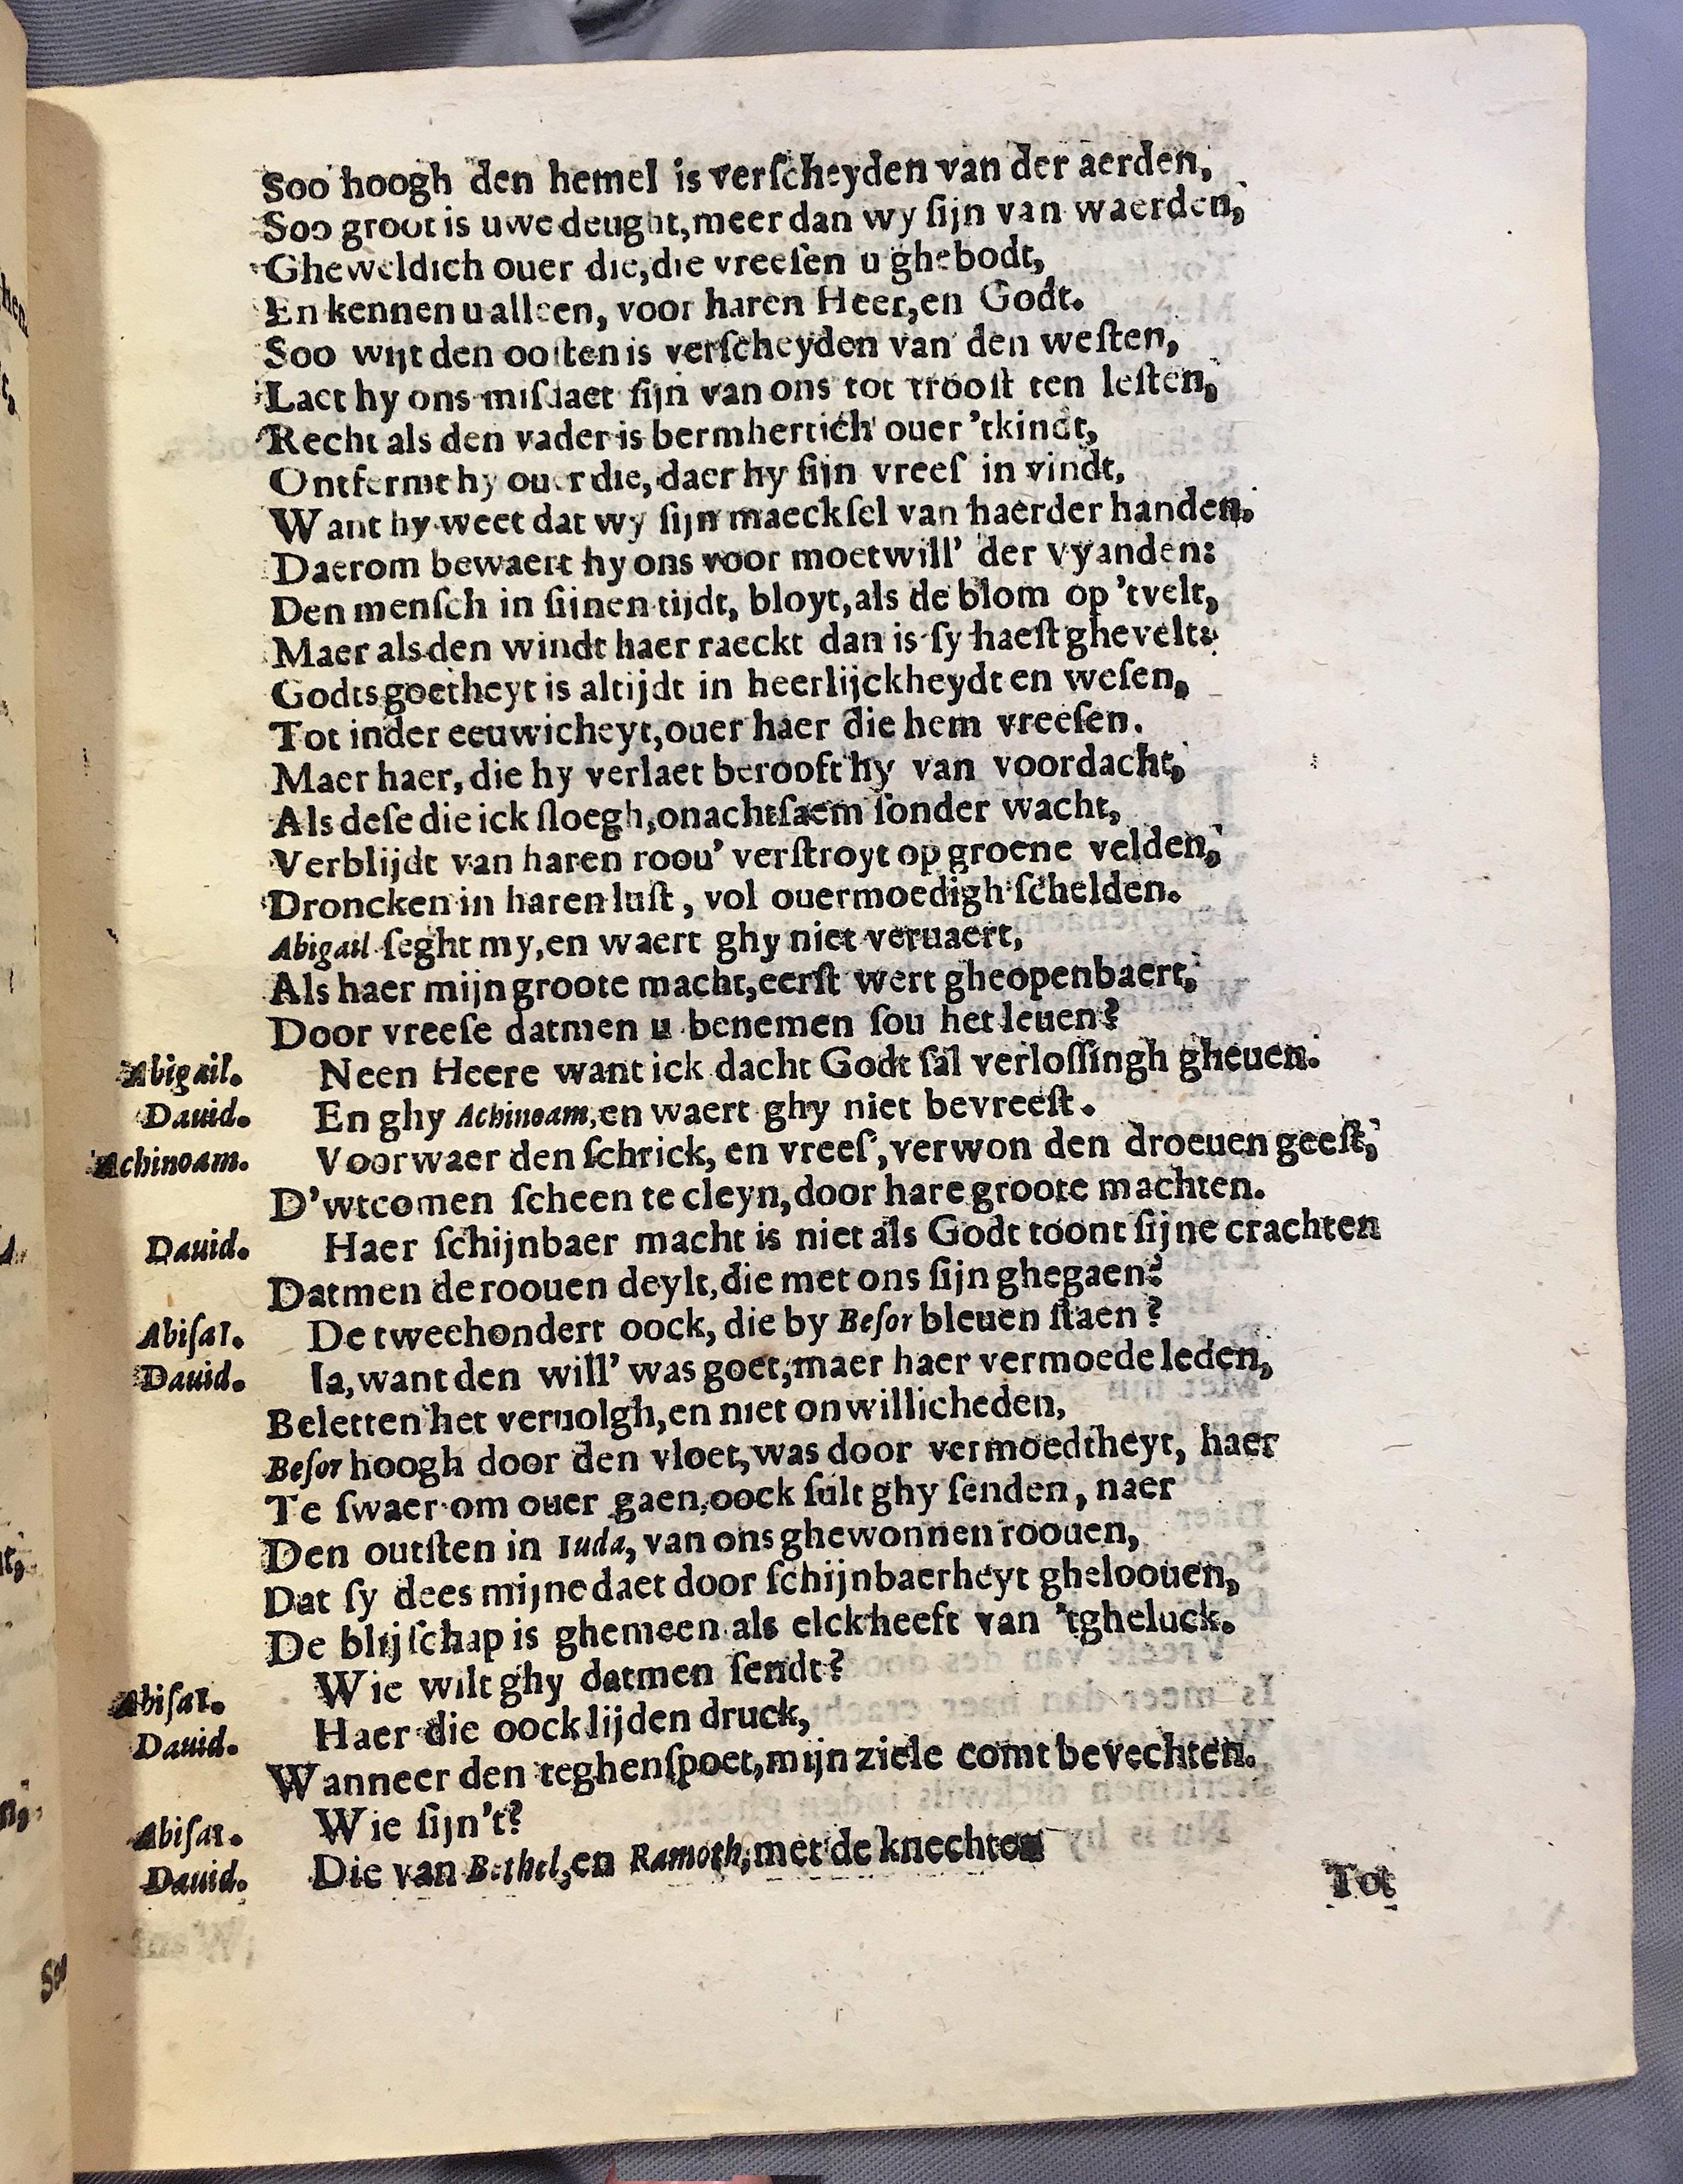 Soo hoogh den hemel is verſcheyden van der aerden,
Soo groot is uwe deught, meer dan wy ſijn van waerden,
Gheweldich ouer die, die vreeſen u ghebodt,
En kennen u alleen, voor haren Heer, en Godt.
Soo wijt den ooſten is verſcheyden van den weſten,
Laet hy ons miſdaet ſijn van ons tot trooſt ten leſten,
Recht als den vader is bermhertich ouer 'tkindt,
Ontfermt hy ouer die, daer hy ſijn vreeſ in vindt,
Want hy weet dat wy ſijn maeckſel van haerder handen.
Daerom bewaert hy ons voor moetwill' der vyanden:
Den menſch in ſijnen tijdt, bloyt, als de blom op 'tvelt,
Maer als den windt haer raeckt dan is ſy haeſt ghevelt:
Godts goetheyt is altijdt in heerlijckheydt en weſen,
Tot inder eeuwicheyt, ouer haer die hem vreeſen.
Maer haer, die hy verlaet berooft hy van voordacht,
Als deſe die ick ſloegh, onachtſaem ſonder wacht,
Verblijdt van haren roou' verſtroyt op groene velden,
Droncken in haren luſt, vol ouermoedigh ſchelden.
Abigail ſeght my, en waert ghy niet veruaert,
Als haer mijn groote macht, eerſt wert gheopenbaert,
Door vreeſe datmen u benemen ſou het leuen?
Abigail. Neen Heere want ick dacht Godt ſal verloſſingh gheuen.
Dauid. En ghy Achinoam, en waert ghy niet bevreeſt.
Achinoam. Voorwaer den ſchrick, en vreeſ, verwon den droeuen geeſt,
D'wtcomen ſcheen te cleyn, door hare groote machten.
Dauid. Haer ſchijnbaer macht is niet als Godt toont ſijne crachten
Datmen de roouen deylt, die met ons ſijn ghegaen?
Abiſai. De tweehondert oock, die by Beſor bleuen ſtaen?
Dauid. Ia, want den will' was goet, maer haer vermoede leden,
Beletten het veruolgh, en niet onwillicheden,
Beſor hoogh door den vloet, was door vermoedtheyt, haer
Te ſwaer om ouer gaen, oock ſult ghy ſenden, naer
Den outſten in Iuda, van ons ghewonnen roouen,
Dat ſy dees mijne daet door ſchijnbaerheyt gheloouen,
De blijſchap is ghemeen als elck heeft van 'tgheluck.
Abiſai. Wie wilt ghy datmen ſendt?
Dauid. Haer die oock lijden druck,
Wanneer den teghenſpoet, mijn ziele comt bevechten.
Abiſai. Wie ſijn't?
Dauid. Die van Bethel, en Ramoth, met de knechten
Tot